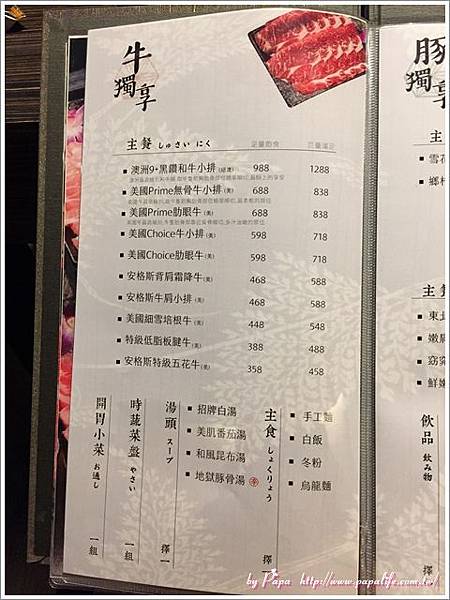 牛獨享
主餐 しゅさい にく 足量飽食 巨量滿足
澳洲9+黑鑽和牛小排(紐澳) 988 1288
美國Prime無骨牛小排(美) 688 838
美國Prime肋眼牛(美) 688 838
美國Choice牛小排(美) 598 718
美國Choice肋眼牛(美) 598 718
安格斯背肩霜降牛(美) 468 588
安格斯牛肩小排(美) 468 588
美國細雪培根牛(美) 448 548
特級低脂板腱牛(美) 388 488
安格斯特級五花牛(美) 358 458
開胃小菜 お通し 一組
時蔬菜盤 やさい 一組
湯頭 スープ 擇一
招牌白湯
美肌番茄湯
和風昆布湯
地獄豚骨湯 辛
主食 しょくりょう 擇一
手工麵
白飯
冬粉
烏龍麵
豚獨
主
雪花
鄉村
主
東北
嫩肩
窈窕
鮮嫩
飲品 飲み物
by Papa http://www.papalife.com.tw/